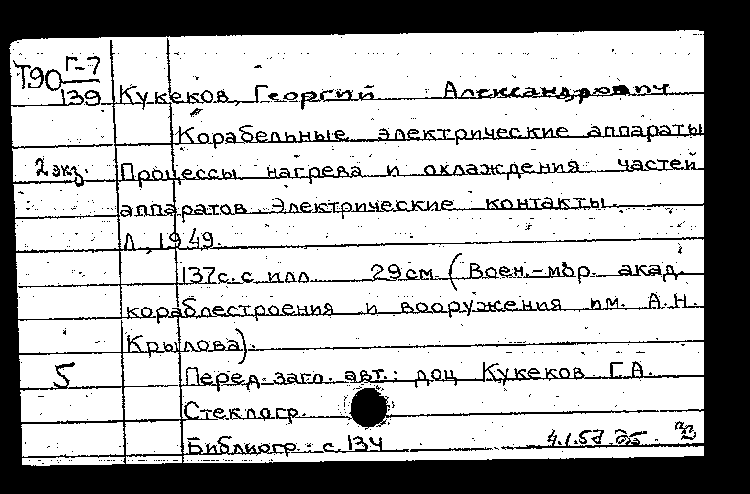 Т90 Г-7
139
Кукеков, Георгий Александрович
Корабельные электрические аппараты
2 экз. Процессы нагрева и охлаждения частей
аппаратов. Электрические контакты.
Л., 1949.
137с. с илл. 29см. (Воен.-мор. акад.
кораблестроения и вооружения им. А.Н.
Крылова).
5 Перед. загл. авт.: доц. Кукеков Г.А.
Стеклогр.
Библиогр.: с. 134